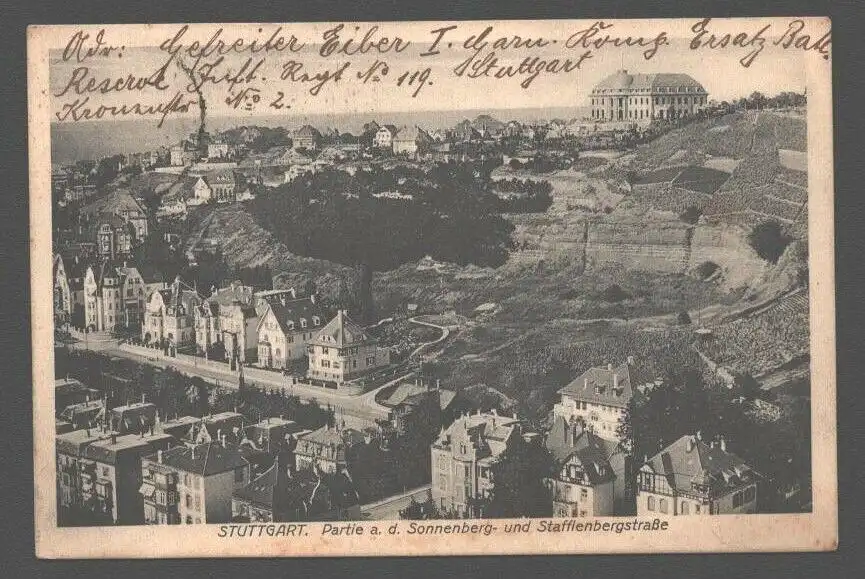 Adr: Gefreiter Eiber I. Garn. Komp. Ersatz Batl.
Reserve Inft. Regt No 119. Stuttgart
No 2.
STUTTGART. Partie a. d. Sonnenberg- und Stafflenbergstraße